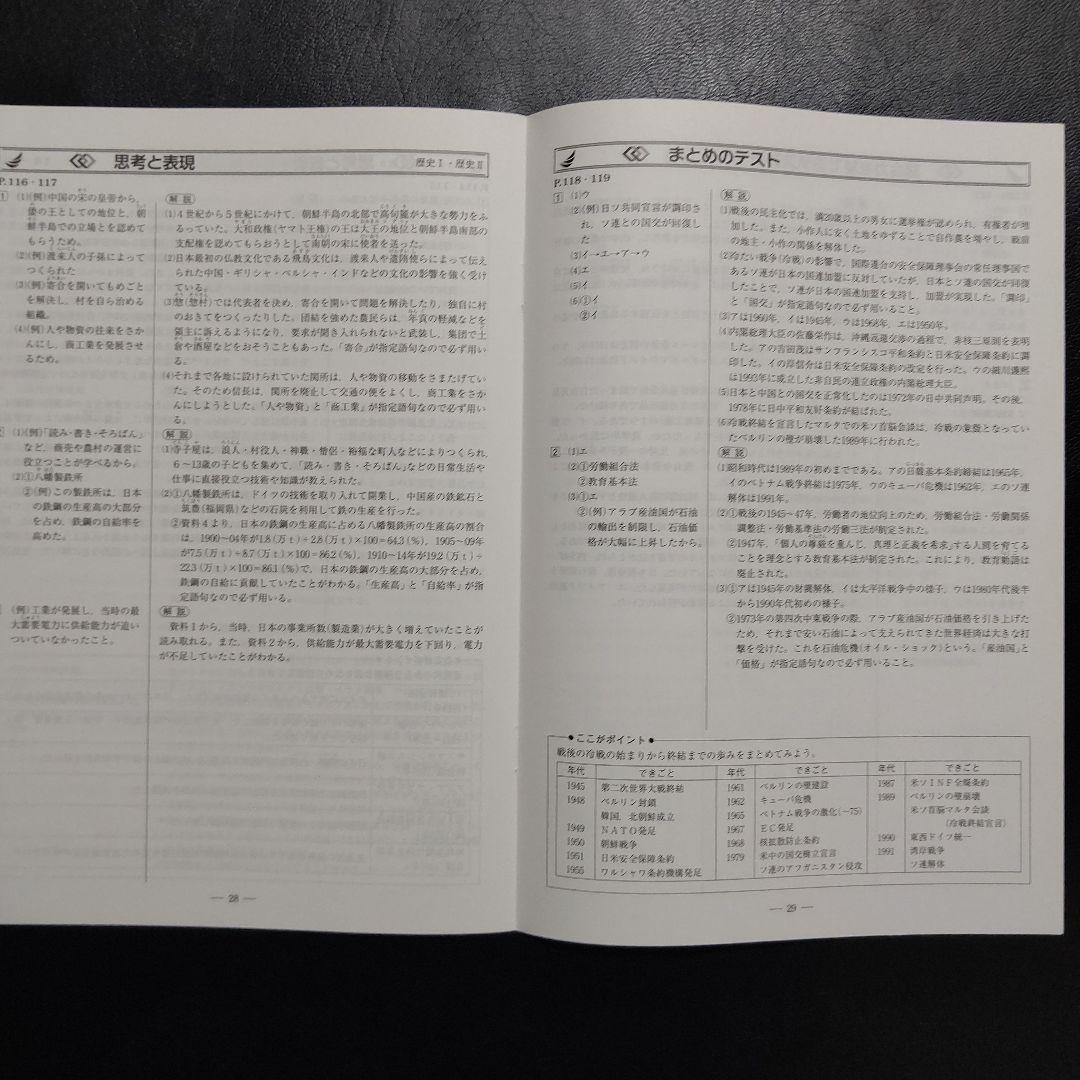 思考と表現
歴史Ⅰ・歴史Ⅱ
P.116・117
1 (1)(例)中国の宋の皇帝から,
倭の王としての地位と, 朝
鮮半島での立場とを認めて
もらうため。
(2)(例)渡来人の子孫によって
つくられた
(3)(例)寄合を開いてもめごと
を解決し, 村を自ら治める
組織。
(4)(例)人や物資の往来をさか
んにし, 商工業を発展させ
るため。
解説
(1)4世紀から5世紀にかけて, 朝鮮半島の北部で高句麗が大きな勢力をふ
るっていた。大和政権(ヤマト王権)の王は大王の地位と朝鮮半島南部の
支配権を認めてもらおうとして南朝の宋に使者を送った。
(2)日本最初の仏教文化である飛鳥文化は, 渡来人や遣隋使らによって伝え
られた中国・ギリシャ・ペルシャ・インドなどの文化の影響を強く受け
ている。
(3)惣(惣村)では代表者を決め, 寄合を開いて問題を解決したり, 独自に村
のおきてをつくったりした。団結を強めた農民らは, 年貢の軽減などを
領主に訴えるようになり, 要求が聞き入れられないと武装し, 集団で土
倉や酒屋などをおそうこともあった。「寄合」が指定語句なので必ず用い
る。
(4)それまで各地に設けられていた関所は, 人や物資の移動をさまたげてい
た。そのため信長は, 関所を廃止して交通の便をよくし, 商工業をさか
んにしようとした。「人や物資」と「商工業」が指定語句なので必ず用い
る。
(1)(例)「読み・書き・そろばん」
など, 商売や農村の運営に
役立つことが学べるから。
(2)①八幡製鉄所
②(例)この製鉄所は, 日本
の鉄鋼の生産高の大部分
を占め, 鉄鋼の自給率を
高めた。
解説
(1)寺子屋は, 浪人・村役人・神職・僧侶・裕福な町人などによりつくられ,
6～13歳の子どもを集めて,「読み・書き・そろばん」などの日常生活や
仕事に直接役立つ技術や知識が教えられた。
(2)①八幡製鉄所は, ドイツの技術を取り入れて開業し, 中国産の鉄鉱石と
筑豊(福岡県)などの石炭を利用して鉄の生産を行った。
②資料4より, 日本の鉄鋼の生産高に占める八幡製鉄所の生産高の割合
は, 1900～04年が1.8(万t)÷2.8(万t)×100=64.3(%), 1905～09年
が7.5(万t)÷8.7(万t)×100=86.2(%), 1910～14年が19.2(万t)÷
22.3(万t)×100=86.1(%)で, 日本の鉄鋼の生産高の大部分を占め,
鉄鋼の自給に貢献していたことがわかる。「生産高」と「自給率」が指
定語句なので必ず用いる。
(例)工業が発展し, 当時の最
大需要電力に供給能力が追い
ついていなかったこと。
解説
資料1から, 当時, 日本の事業所数(製造業)が大きく増えていたことが
読み取れる。また, 資料2から, 供給能力が最大需要電力を下回り, 電力
が不足していたことがわかる。
— 28 —
まとめのテスト
P.118・119
1 (1)ウ
(2)(例)日ソ共同宣言が調印さ
れ, ソ連との国交が回復し
た
(3)イ→エ→ア→ウ
(4)エ
(5)イ
(6)①イ
②イ
解説
(1)戦後の民主化では, 満20歳以上の男女に選挙権が認められ, 有権者が増
加した。また, 小作人に安く土地をゆずることで自作農を増やし, 戦前
の地主・小作の関係を解体した。
(2)冷たい戦争(冷戦)の影響で, 国際連合の安全保障理事会の常任理事国で
あるソ連が日本の国連加盟に反対していたが, 日本とソ連の国交が回復
したことで, ソ連が日本の国連加盟を支持し, 加盟が実現した。「調印」
と「国交」が指定語句なので必ず用いる。
(3)アは1960年, イは1945年, ウは1968年, エは1950年。
(4)内閣総理大臣の佐藤栄作は, 沖縄返還交渉の過程で, 非核三原則を表明
した。アの吉田茂はサンフランシスコ平和条約と日米安全保障条約に調
印した。イの岸信介は日米安全保障条約の改定を行った。ウの細川護熙
は1993年に成立した非自民の連立政権の内閣総理大臣。
(5)日本と中国との国交を正常化したのは1972年の日中共同声明。その後,
1978年に日中平和友好条約が結ばれた。
(6)冷戦終結を宣言したマルタでの米ソ首脳会談は, 冷戦の象徴となってい
たベルリンの壁が崩壊した1989年に行われた。
2 (1)エ
(2)①労働組合法
②教育基本法
(3)①エ
②(例)アラブ産油国が石油
の輸出を制限し, 石油価
格が大幅に上昇したから。
解説
(1)昭和時代は1989年の初めまでである。アの日韓基本条約締結は1965年,
イのベトナム戦争終結は1975年, ウのキューバ危機は1962年, エのソ連
解体は1991年。
(2)①戦後の1945～47年, 労働者の地位向上のため, 労働組合法・労働関係
調整法・労働基準法の労働三法が制定された。
②1947年,「個人の尊厳を重んじ, 真理と正義を希求」する人間を育てる
ことを理念とする教育基本法が制定された。これにより, 教育勅語は
廃止された。
(3)①アは1945年の財閥解体, イは太平洋戦争中の様子, ウは1980年代後半
から1990年代初めの様子。
②1973年の第四次中東戦争の際, アラブ産油国が石油価格を引き上げた
ため, それまで安い石油によって支えられてきた世界経済は大きな打
撃を受けた。これを石油危機(オイル・ショック)という。「産油国」と
「価格」が指定語句なので必ず用いること。
●ここがポイント●
戦後の冷戦の始まりから終結までの歩みをまとめてみよう。
年代 できごと 年代 できごと 年代 できごと
1945 第二次世界大戦終結 1961 ベルリンの壁建設 1987 米ソINF全廃条約
1948 ベルリン封鎖 1962 キューバ危機 1989 ベルリンの壁崩壊
韓国, 北朝鮮成立 1965 ベトナム戦争の激化(～75) 米ソ首脳マルタ会談
1949 NATO発足 1967 EC発足 (冷戦終結宣言)
1950 朝鮮戦争 1968 核拡散防止条約 1990 東西ドイツ統一
1951 日米安全保障条約 1979 米中の国交樹立宣言 1991 湾岸戦争
1955 ワルシャワ条約機構発足 ソ連のアフガニスタン侵攻 ソ連解体
— 29 —